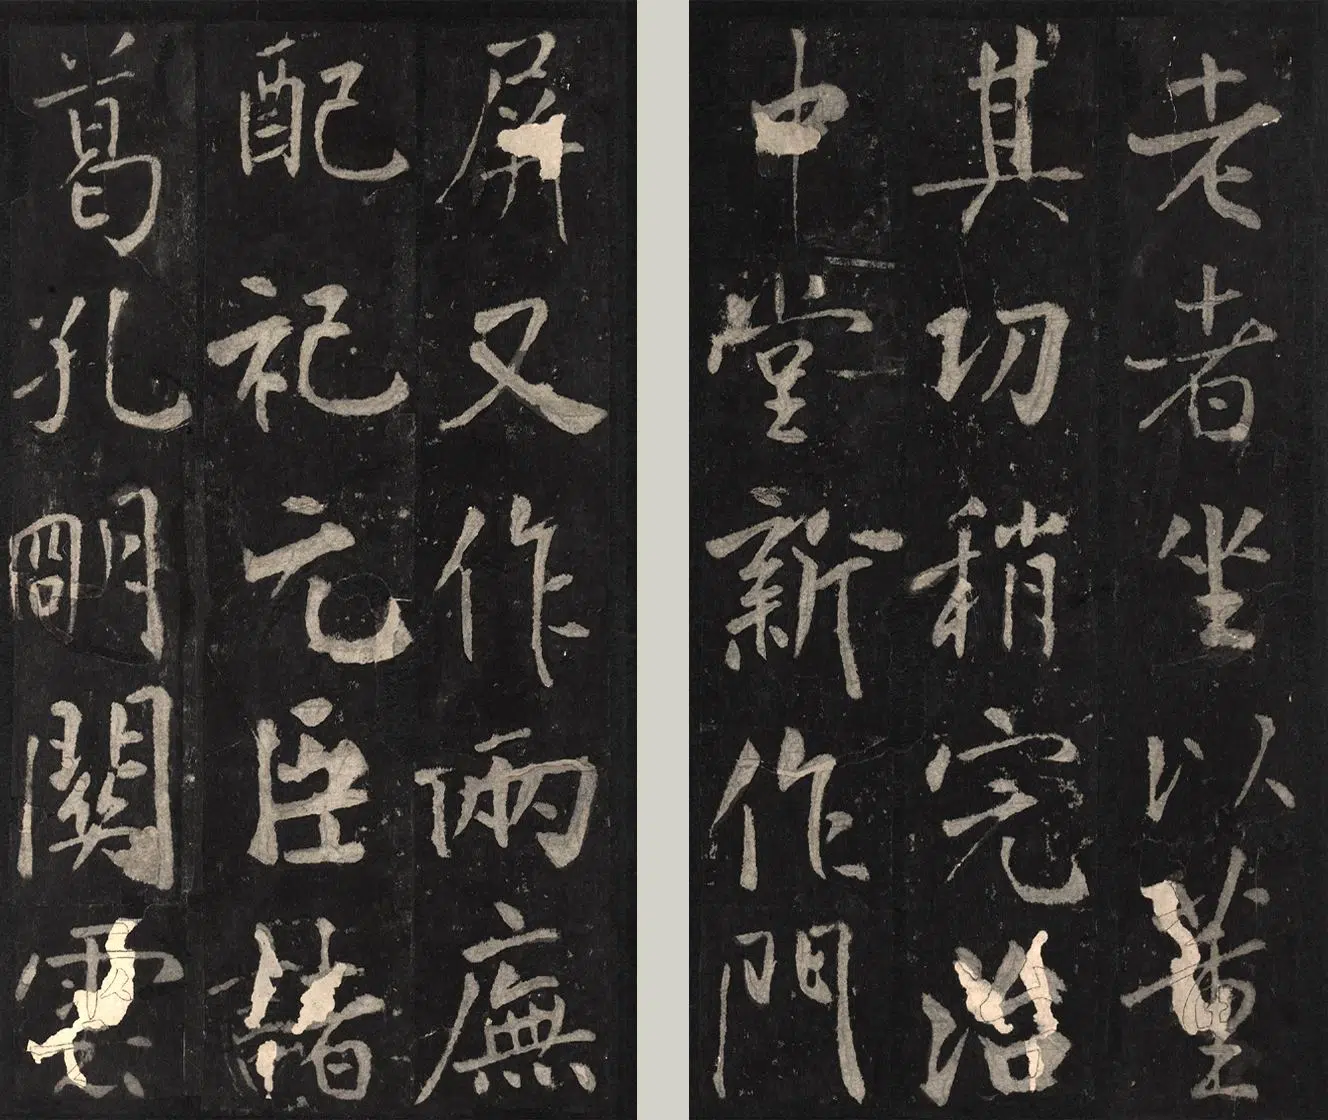 老者坐以董
其功稍完治
中堂新作門
屏又作兩廡
配祀元臣諸
葛孔明關雲